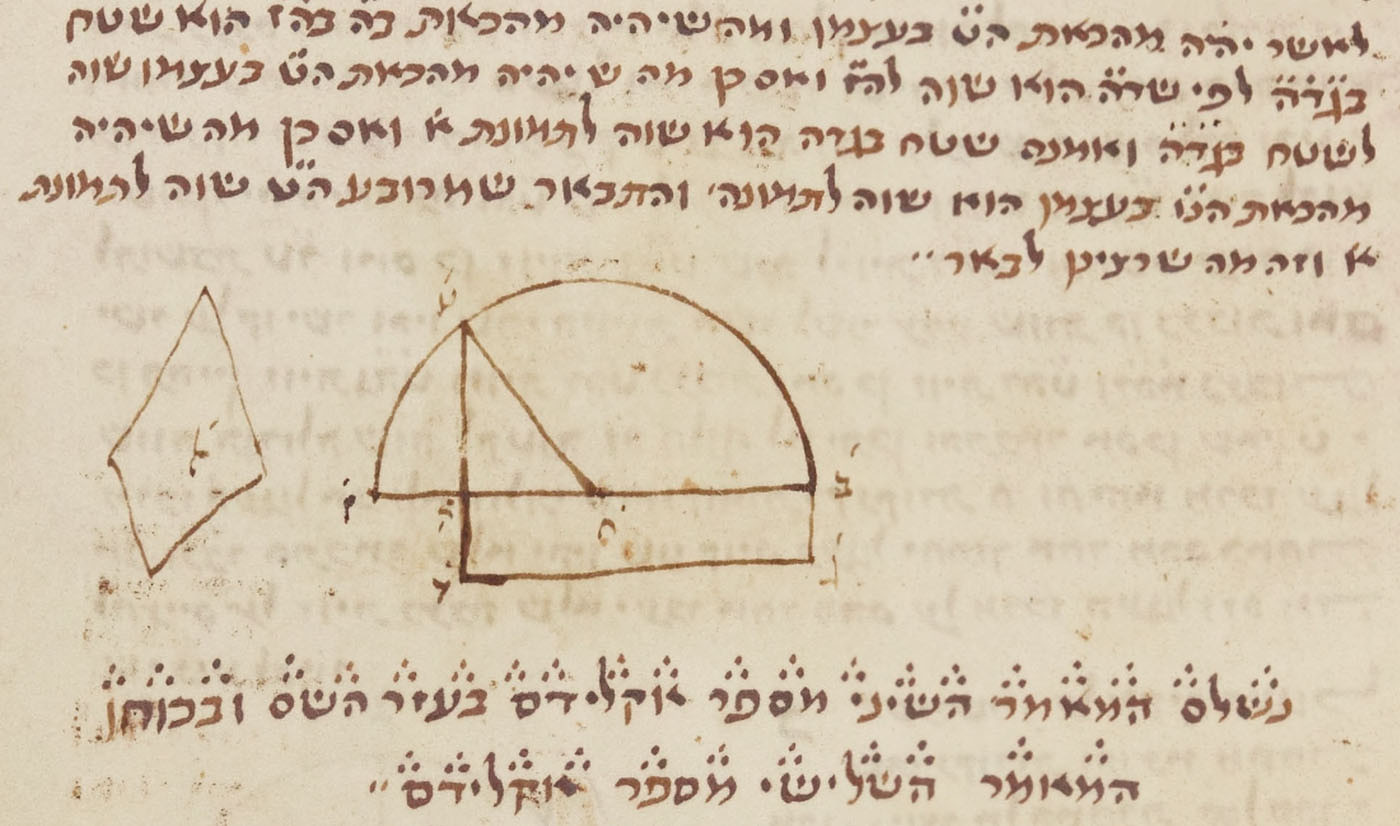 לאשר יהיה מהכאת הט בעצמו ומה שיהיה מהכאת בה בהז הוא שטח
בגדה לפי שדה הוא שוה להז ואם כן מה שיהיה מהכאת הט בעצמו שוה
לשטח בגדה ואמנה שטח בגדה הוא שוה לתמונת א ואם כן מה שיהיה
מהכאת הט בעצמו הוא שוה לתמונה והתבאר שמרובע הט שוה לתמונת
א וזה מה שרצינו לבאר
ט
א
ז ה ח ב
ד ג
נשלם המאמר השיני מספר אוקלידס בעזר השם ובכוחו
המאומר השלישי מספר אוקלידס